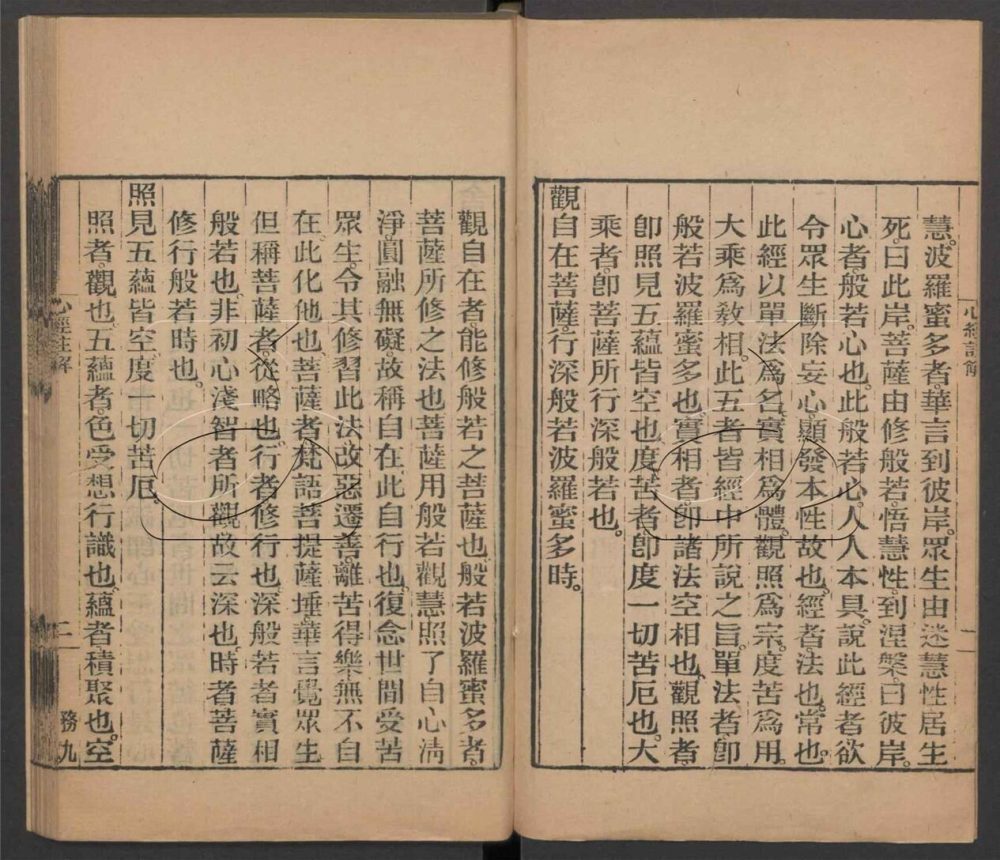 慧。波羅蜜多者。華言到彼岸。眾生由迷慧性居生
死。曰此岸。菩薩由修般若悟慧性。到涅槃曰彼岸。
心者般若心也。此般若心。人人本具。說此經者欲
令眾生斷除妄心。顯發本性故也。經者。法也。常也。
此經以單法爲名。實相爲體。觀照爲宗。度苦爲用。
大乘爲教相。此五者皆經中所說之旨。單法者。卽
般若波羅蜜多也。實相者。卽諸法空相也。觀照者。
卽照見五蘊皆空也。度苦者。卽度一切苦厄也。大
乘者。卽菩薩所行深般若也。
觀自在菩薩。行深般若波羅蜜多時。
心經註解
一
觀自在者。能修般若之菩薩也。般若波羅蜜多者。
菩薩所修之法也。菩薩用般若觀慧照了自心清
淨圓融無礙。故稱自在。此自行也。復念世間受苦
眾生。令其修習此法。改惡遷善離苦得樂無不自
在。此化他也。菩薩者。梵語菩提薩埵。華言覺眾生
但稱菩薩者。從略也。行者修行也。深般若者實相
般若也。非初心淺智者所觀。故云深也。時者菩薩
修行般若時也。
照見五蘊皆空。度一切苦厄。
照者。觀也。五蘊者。色受想行識也。蘊者積聚也。空
心經註解
二
務九